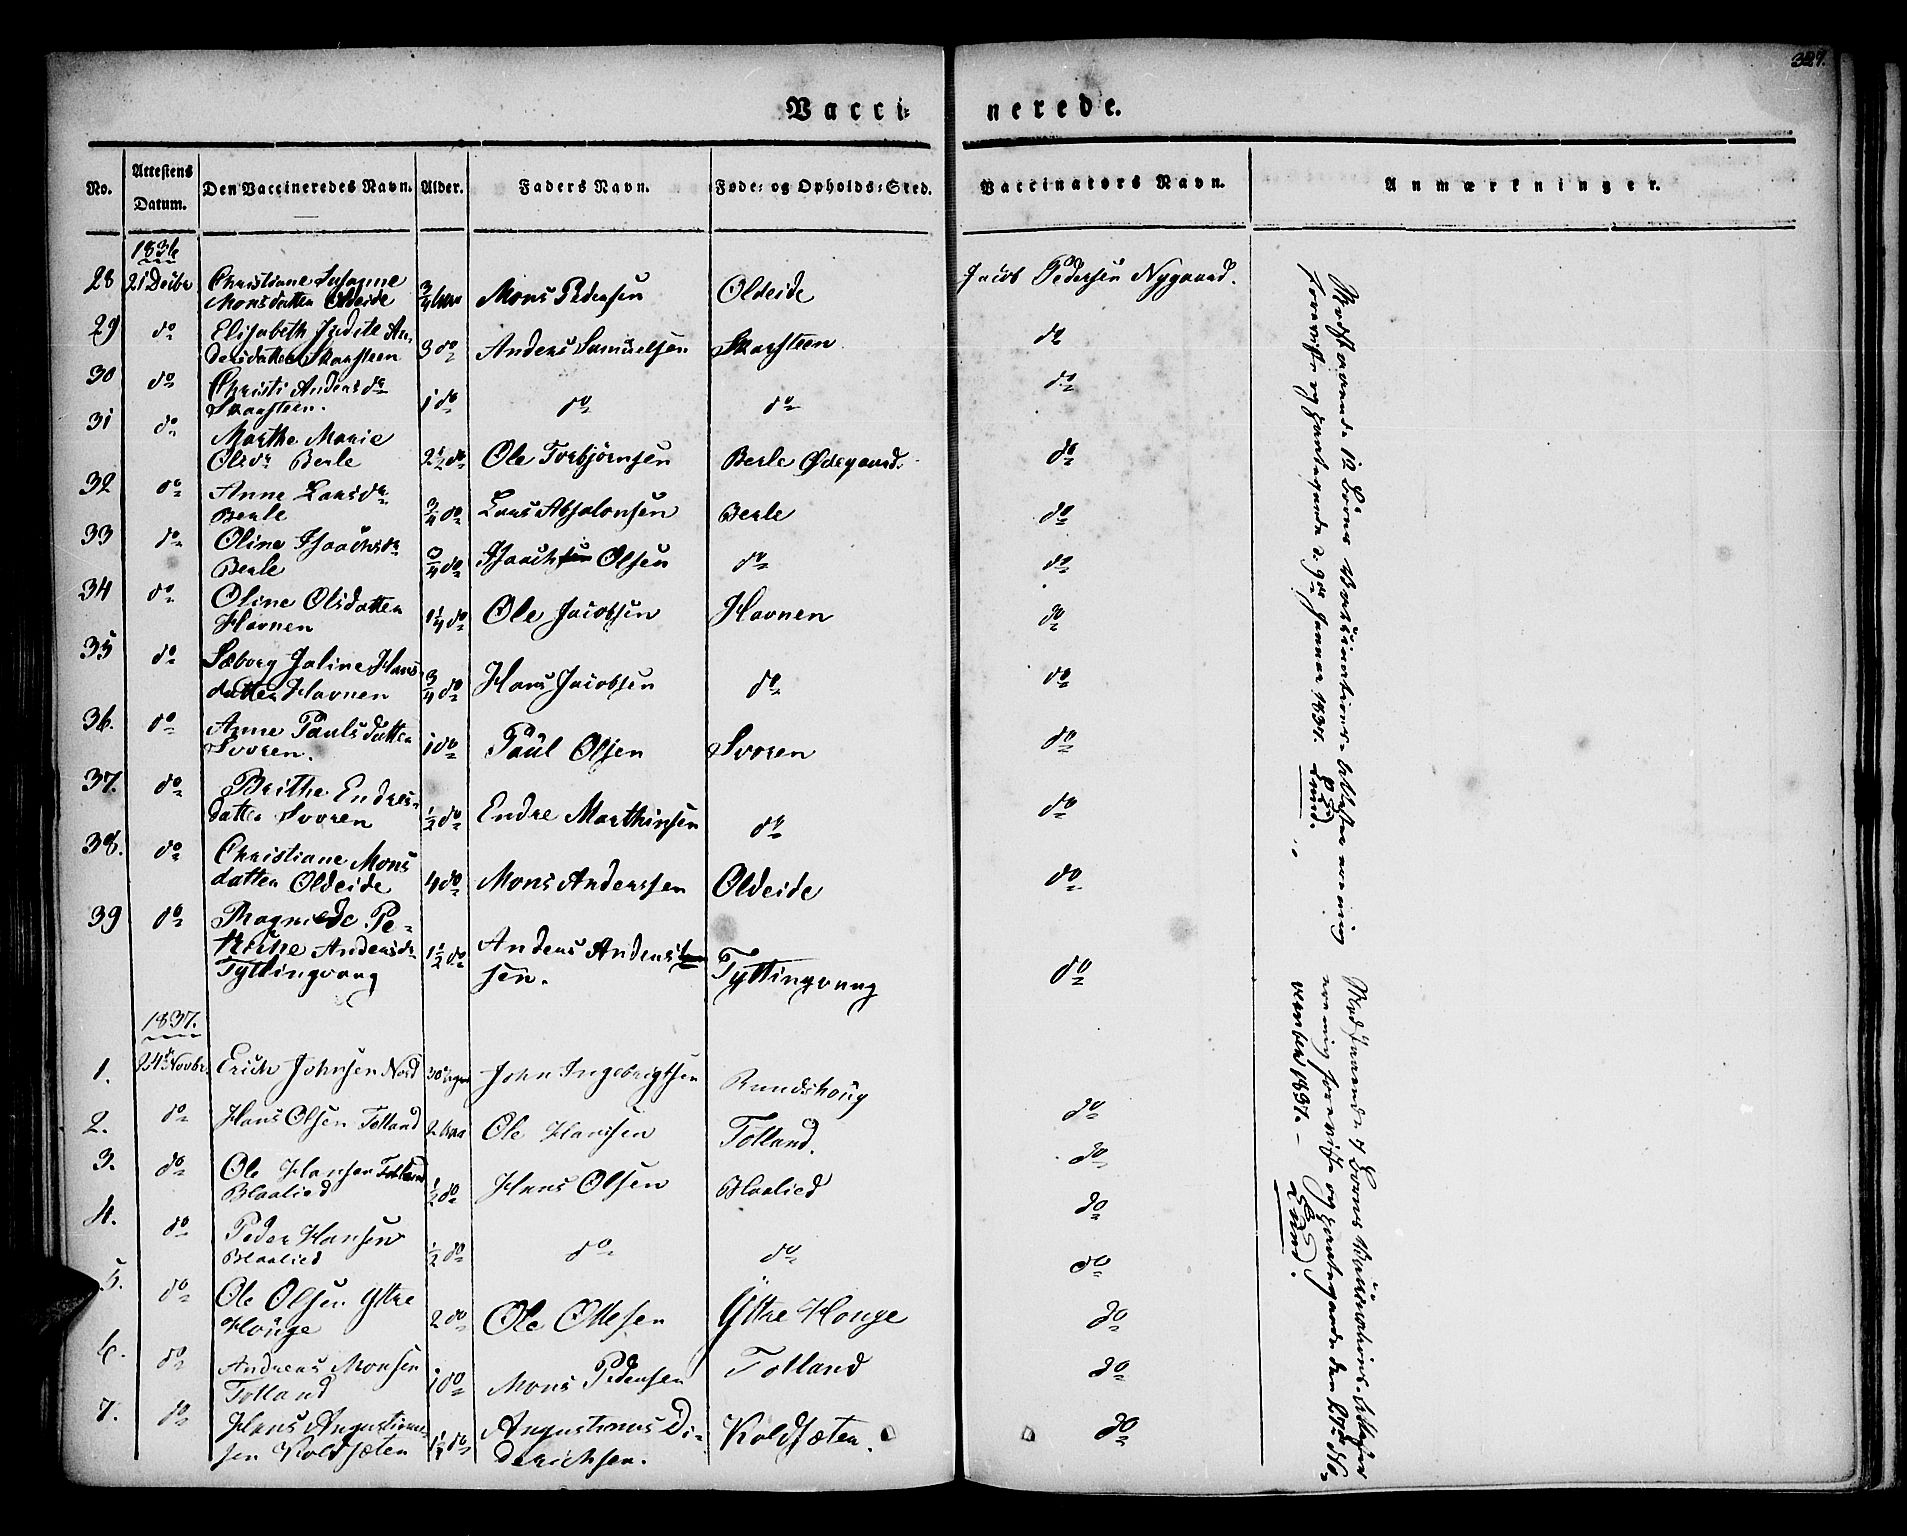 327.
Vacci- nerede.
No. Attestens Datum. Den Vaccineredes Navn. Alder. Faders Navn. Føde- og Opholds-Sted. Vaccinators Navn. Anmærkninger.
1836
28 21 Decbr Christiane Susanne Monsdatter Oldeide 3/4 Mons Pedersen Oldeide Jacob Pedersen Nygaard.
29 do Elisabeth Judite Andersdatter Skarsteen 3 do Anders Samuelsen Skarsteen do
30 do Christi Andersdr Skarsteen. 1 do do do do
31 do Marthe Marie Olsdr Berle 2 1/2 do Ole Torbjørnsen Berle Ødegaard. do
32 do Anne Larsdr Berle 3/4 do Lars Absalonsen Berle do
33 do Oline Isaachsdr Berle 3/4 do Isaach Olsen do do
34 do Oline Olsdatter Havnen 1 1/4 do Ole Jacobsen Havnen do
35 do Sæborg Jaline Hansdatter Havnen 3/4 do Hans Jacobsen do do
36. do Anne Paulsdatter Svoren. 1 do Paul Olsen Svoren do
37. do Brithe Endresdatter Svoren 1/2 do Endre Marthinsen do do
38. do Christiane Monsdatter Oldeide 4 do Mons Anderssen Oldeide do
39 do Magnilde Petrikke Andersdr Tyttingvaag 1 1/2 do Anders Anderssen. Tyttingvaag do
1837.
1. 24de Novbr. Erich Johnsen Nord 30 Johan Ingebrigtsen Rundshoug do
2. do Hans Olsen Folland 2 Ole Hansen Folland. do
3. do Ole Hansen Blaalied 1/2 do Hans Olsen Blaalied do
4. do Peder Hansen Blaalied 1/2 do do do do
5. do Ole Olsen Yttre Houge 2 do Ole Ottesen Yttre Houge do
6. do Andreas Monsen Folland 1 do Mons Pedersen Folland do
7. do Hans Augustinussen Koldsæten 1 1/2 do Augustinus Diderichsen. Koldsæten. do
Modstaaende 12 Børns Vaccinations-Attester ere mig
foreviste og paategnede d. 9de Januar 1837.
Lund.
Modstaaende 7 Børns Vaccinations-Attester
ere mig foreviste og paategnede den 27de No-
vember 1837. –
Lund.